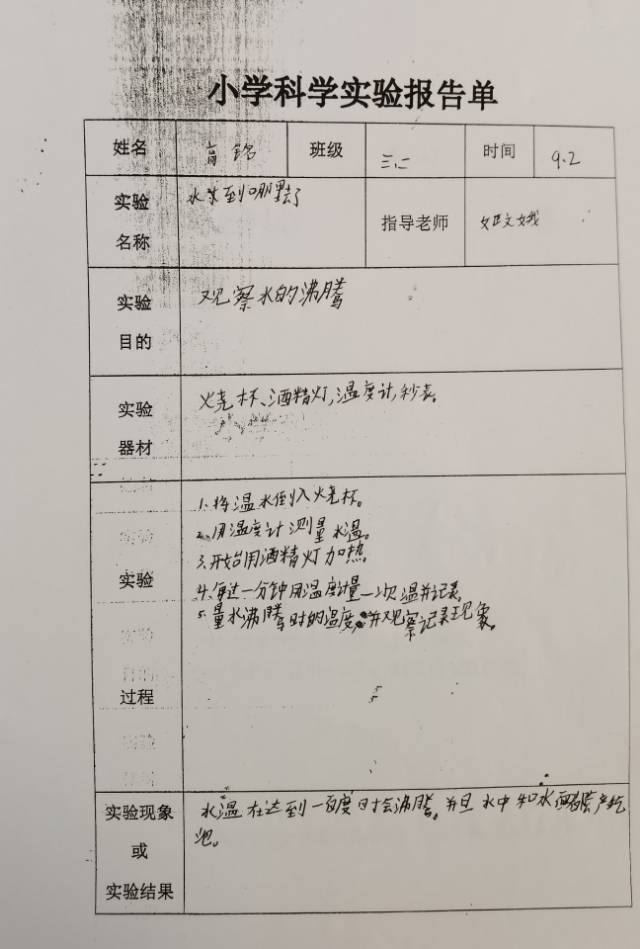 小学科学实验报告单
姓名 班级 三、二 时间 9.2
实验名称 水去到哪里去了 指导老师
实验目的 观察水的沸腾
实验器材 烧杯、酒精灯,温度计,秒表。
实验过程
1.将温水倒入烧杯。
2.用温度计测量水温。
3.开始用酒精灯加热
4.每过一分钟用温度计量一次温并记录。
5.量水沸腾时的温度,并观察记录现象。
实验现象或实验结果
水温在达到一百度时会沸腾。并且水中和水面都会产气
泡。